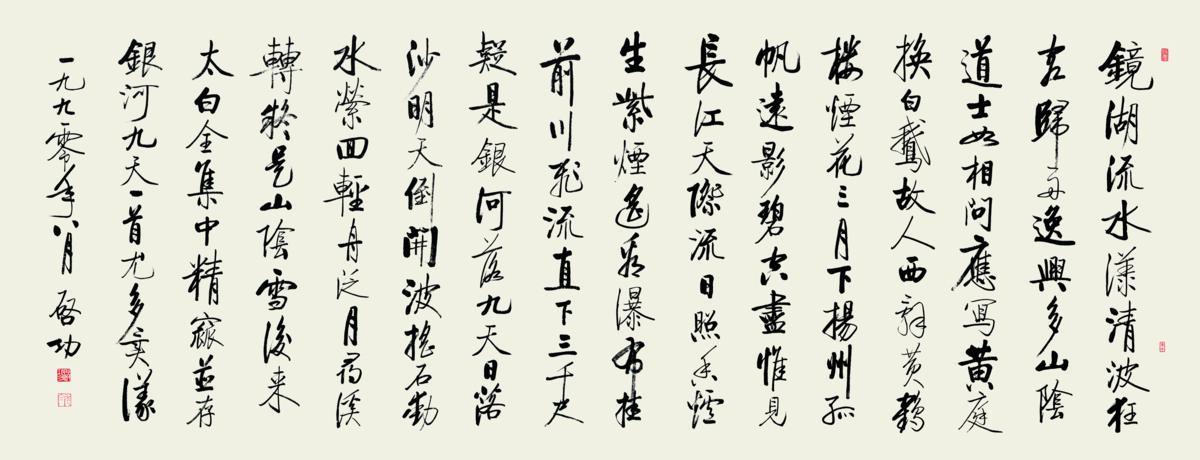 鏡湖流水漾清波狂
客歸舟逸興多山陰
道士如相問應寫黃庭
換白鵝故人西辭黃鶴
樓煙花三月下揚州孤
帆遠影碧空盡惟見
長江天際流日照香爐
生紫煙遙看瀑布挂
前川飛流直下三千尺
疑是銀河落九天日落
沙明天倒開波搖石動
水縈回輕舟泛月尋溪
轉疑是山陰雪後來
太白全集中精窳並存
銀河九天一首尤多
一九九零年八月 啓功